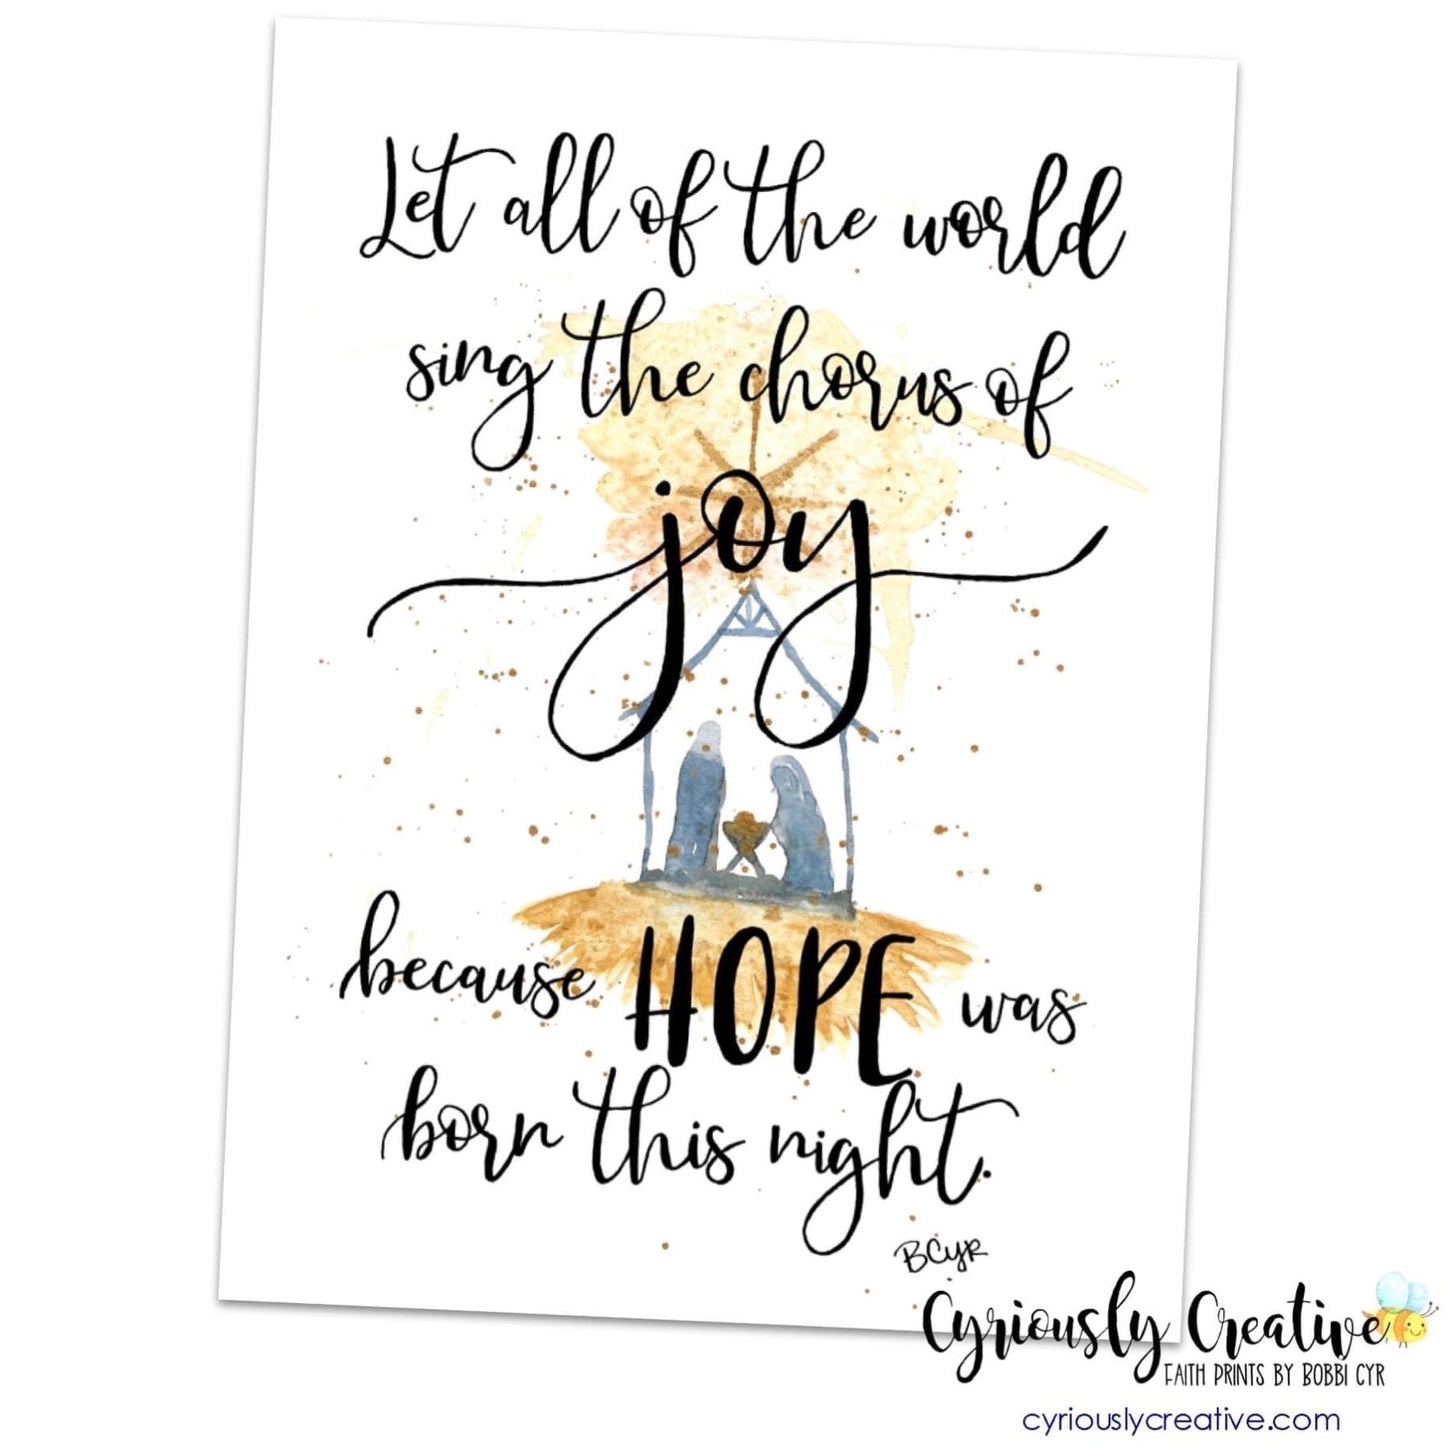 Let all of the world
sing the chorus of
joy
because HOPE was
born this night.
BCyr
Cyriously Creative
FAITH PRINTS BY BOBBI CYR
cyriouslycreative.com